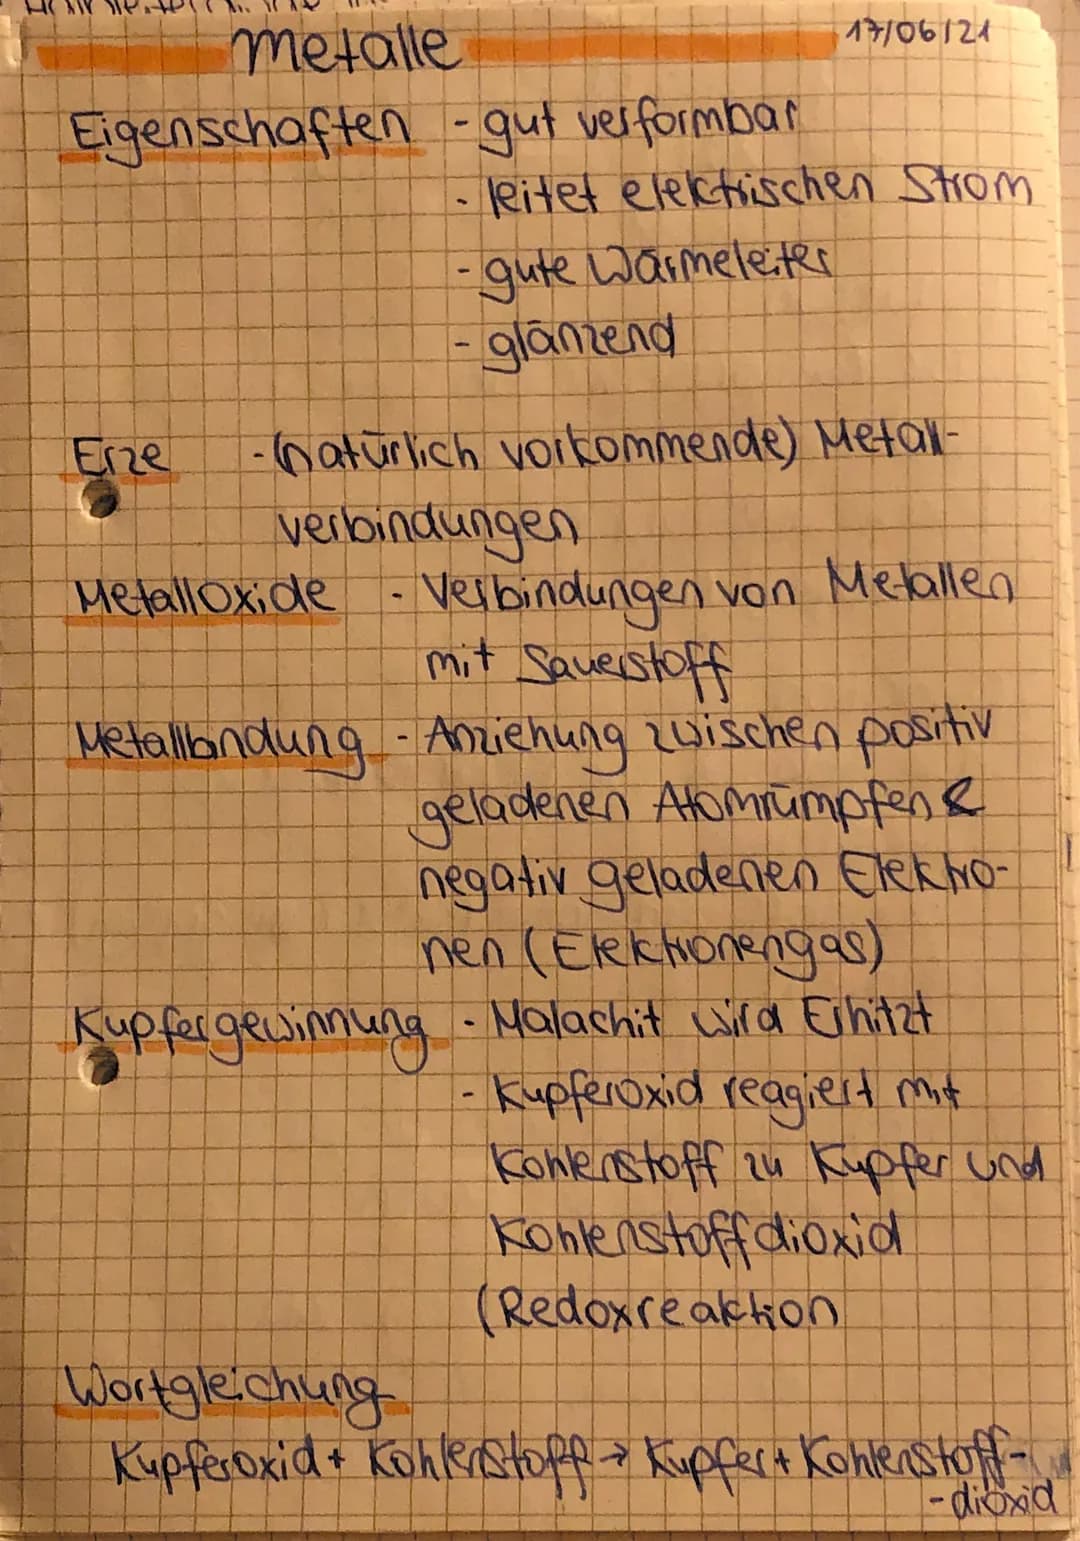 Metalle 17/06/21
Eigenschaften - gut verformbar
- leitet elektrischen Strom
- gute Wärmeleiter
- glänzend
Erze - (natürlich vorkommende) Metall-
verbindungen
Metalloxide - Verbindungen von Metallen
mit Sauerstoff
Metallbindung - Anziehung zwischen positiv
geladenen Atomrümpfen &
negativ geladenen Elektro-
nen (Elektronengas)
Kupfergewinnung - Malachit wird Erhitzt
- Kupferoxid reagiert mit
Kohlenstoff zu Kupfer und
Kohlenstoffdioxid
(Redoxreaktion
Wortgleichung
Kupferoxid + Kohlenstoff → Kupfer + Kohlenstoff-
-dioxid